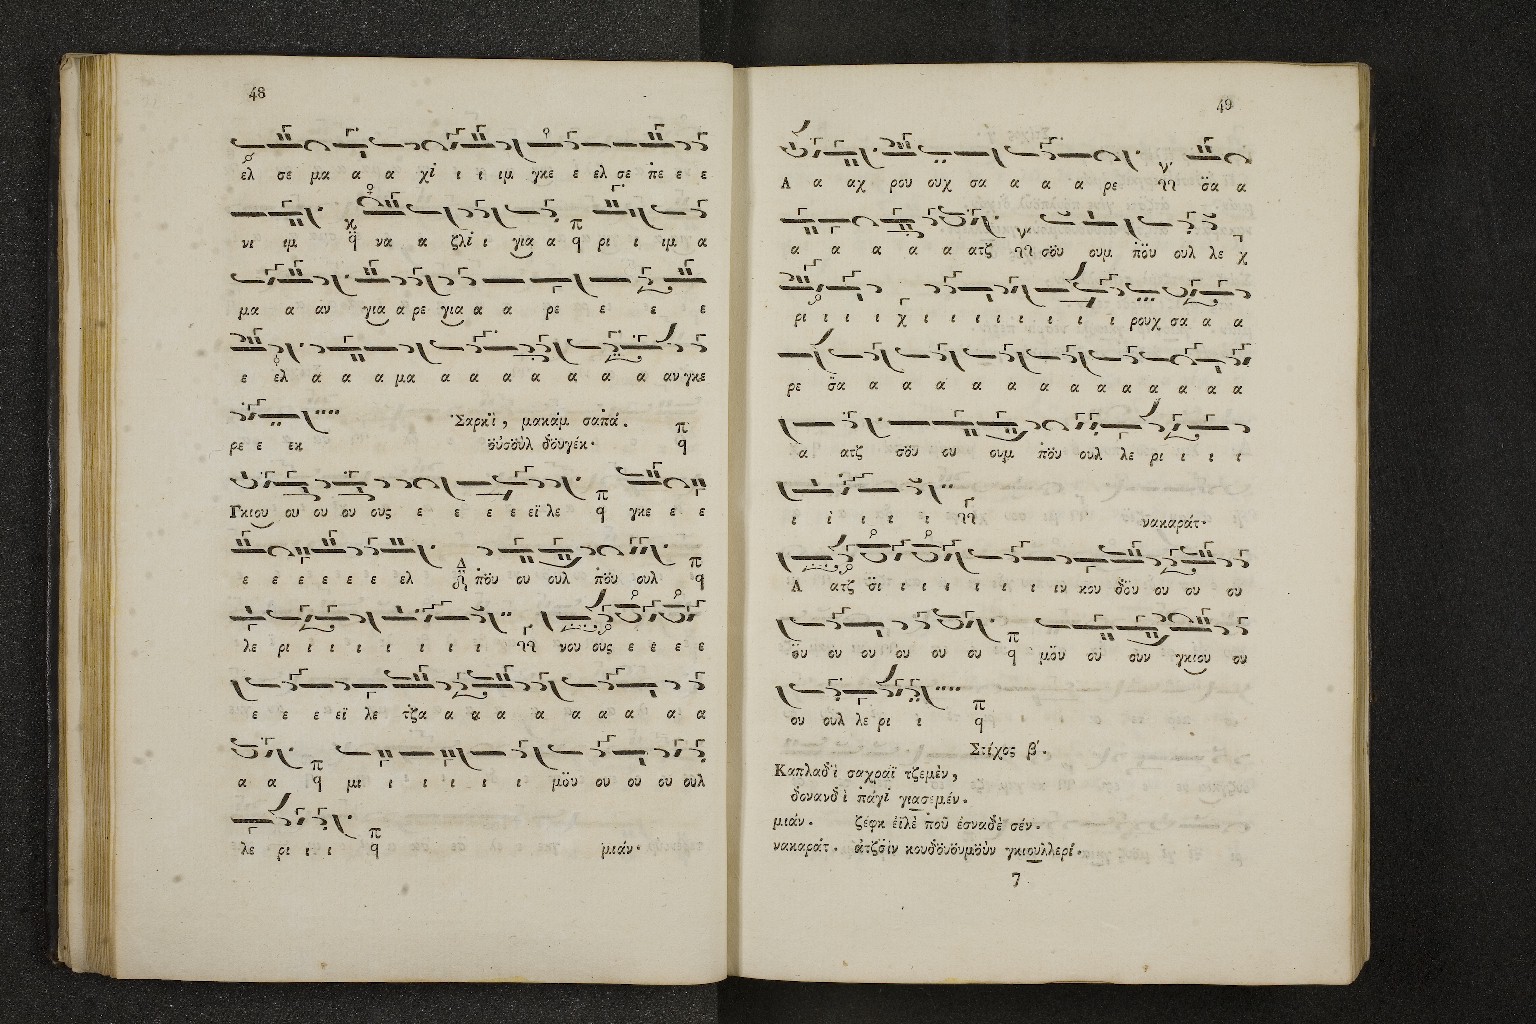 48
ἐλ σε μα α α χὶ ι ι ιμ γκε ε ελ σε πε ε ε
νι ιμ να α ζλὶ ι για α ρι ι ιμ α
μα α αν για α ρε για α α ρε ε ε ε
ε ὲλ α α α μα α α α α α α α αν γκε
ρε ε εκ
Σαρκὶ, μακὰμ σαπά.
οὐσοὺλ δουγέκ.
Γκιου ου ου ου ους ε ε ε ε εϊ λε γκε ε ε
ε ε ε ε ε ε ελ πὄυ ου ουλ πὄυ ουλ
λε ρι ι ι ι ι ι ι νου ους ε ε ε ε
ε ε ε εϊ λε τζα α α α α α α α α α
α α μι ι ι ι ι ι μὄυ ου ου ου ουλ
λε ρι ι ι μιάν.
49
Α α αχ ρου ουχ σα α α α ρε σα α
α α α α α ατζ σὄυ ουμ πὄυ ουλ λε χ
ρι ι ι ι χ ι ι ι ι ι ι ι ρουχ σα α α
ρε σα α α α α α α α α α α α α
α ατζ σὄυ ου ουμ πὄυ ουλ λε ρι ι ι ι
ι ὶ ι ι ι νακαράτ.
Α ατζ σϊ ι ι ι ι ι ι ιν κου δὄυ ου ου ου
ὄυ ου ου ου ου ου μὄυ οὐ ουν γκιου ου
ου ουλ λε ρι ι
Στίχος β΄.
Καπλαδὶ σαχραΐ τζεμὲν,
δονανδὶ πάγὶ γιασεμέν.
μιάν. ζεφκ ἐϊλὲ ποῦ ἐσναδὲ σέν.
νακαράτ. ἀτζσὶν κουδὄυὄυμὄυν γκιουλλερί.
7